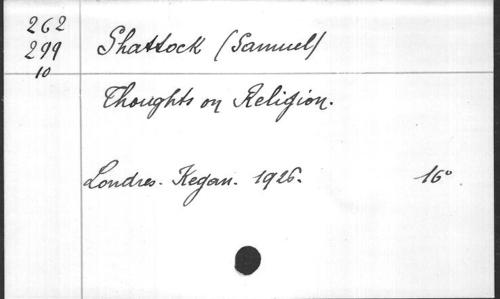 262
299
10
Shattock (Samuel)
Thoughts on Religion.
Londres. Kegan. 1926. 16°